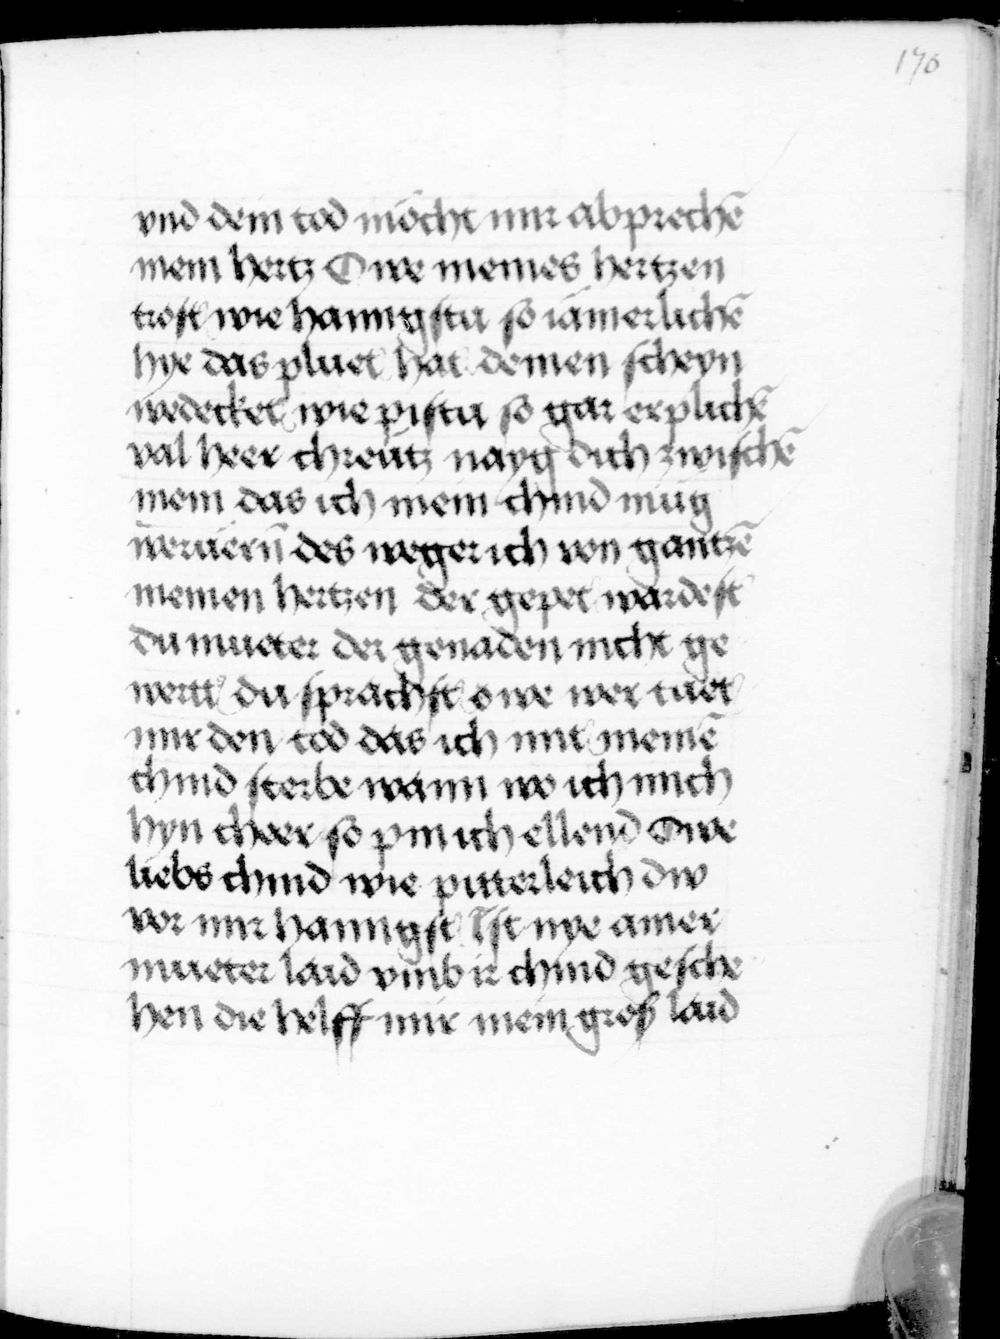 176
vnd dein tod möcht mir abprechē
mein hertz Owe meines hertzen
trost wie hanngstu so iämerlichē
hye das pluet hat deinen scheyn
wedecket wie pistu so gar erplichē
val heer chreutz nayg dich zwischē
mein das ich mein chind müg
werüern des weger ich von gantzē
meinen hertzen der gepet wardest
du mueter der genaden nicht ge
wertt du sprachst owe wer tuet
mir den tod das ich mit meinē
chind sterbe wann wo ich mich
hyn cheer so pin ich ellend Owe
liebs chind wie pitterleich dw
vor mir hanngst Ist nye ainer
mueter laid vmb ir chind gesche
hen die helff mir mein groß laid